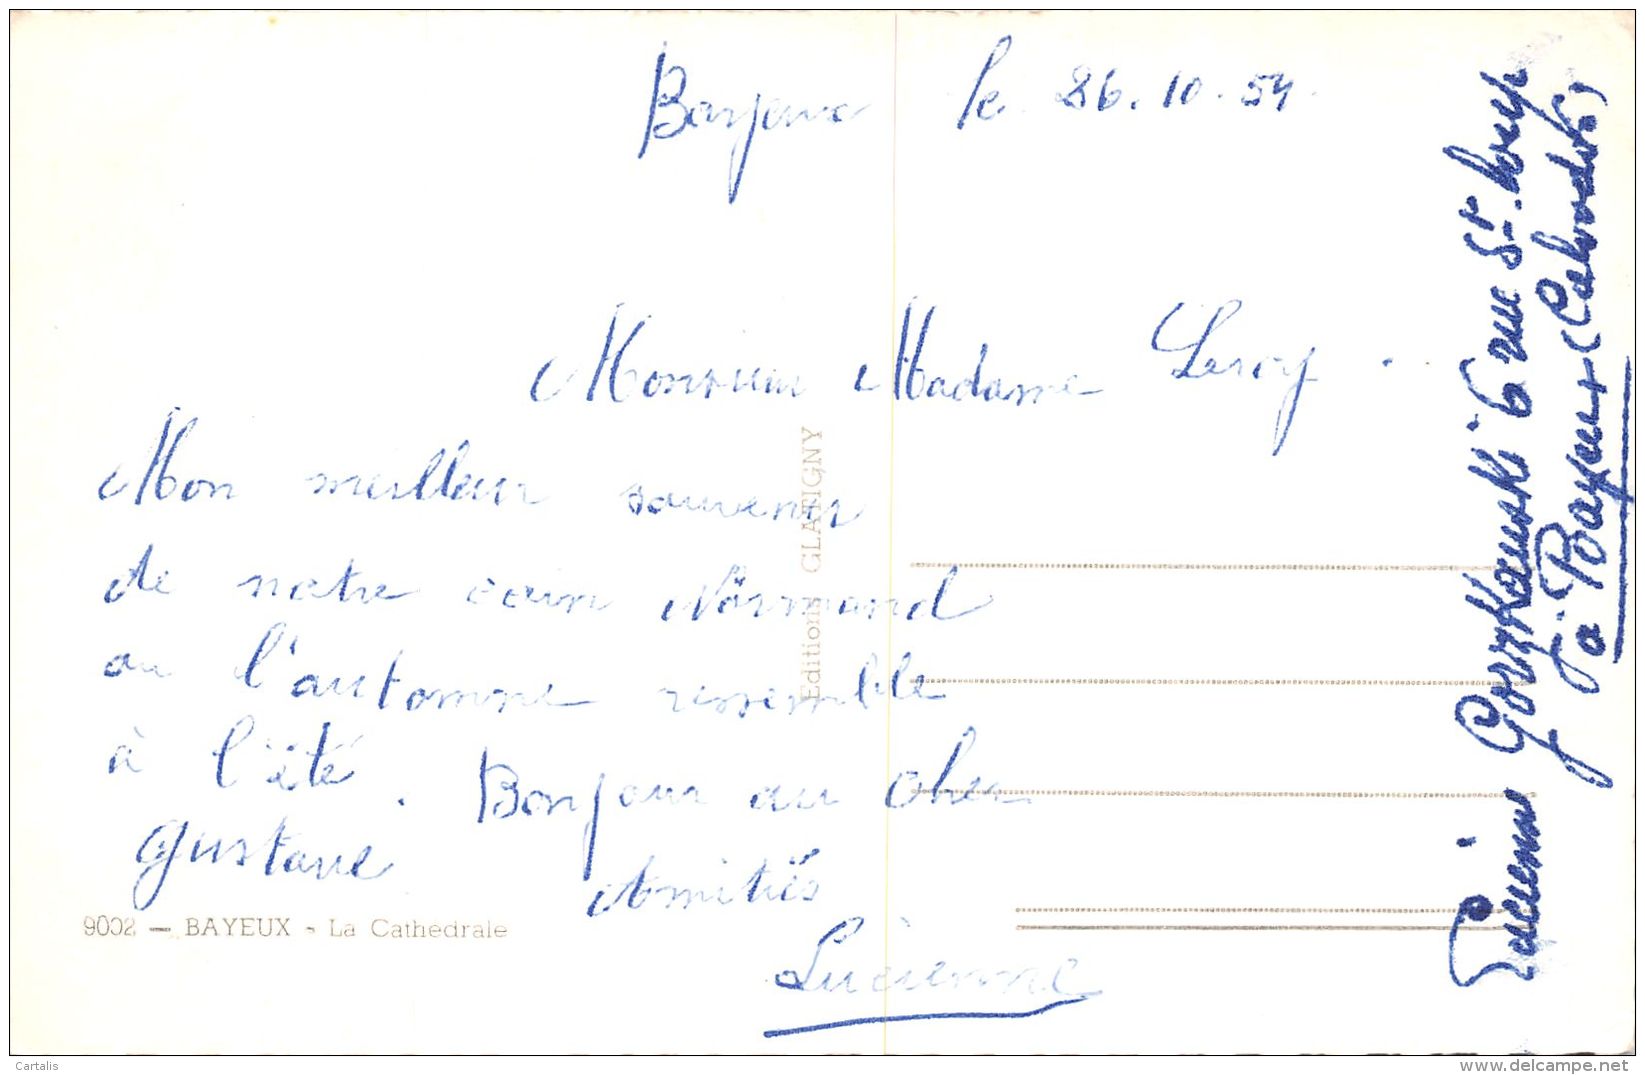 Bayeux le 26.10.54.
Monsieur Madame Leroy.
Mon meilleur souvenir
de notre coin Normand
ou l'automne ressemble
à l'été. Bonjour au cher
Gustave Amitiés
Lucienne
9002 - BAYEUX - La Cathedrale
Editions GLATIGNY
Lucienne 6 rue St. Loup
à Bayeux (Calvados)
Cartalis
www.delcampe.net